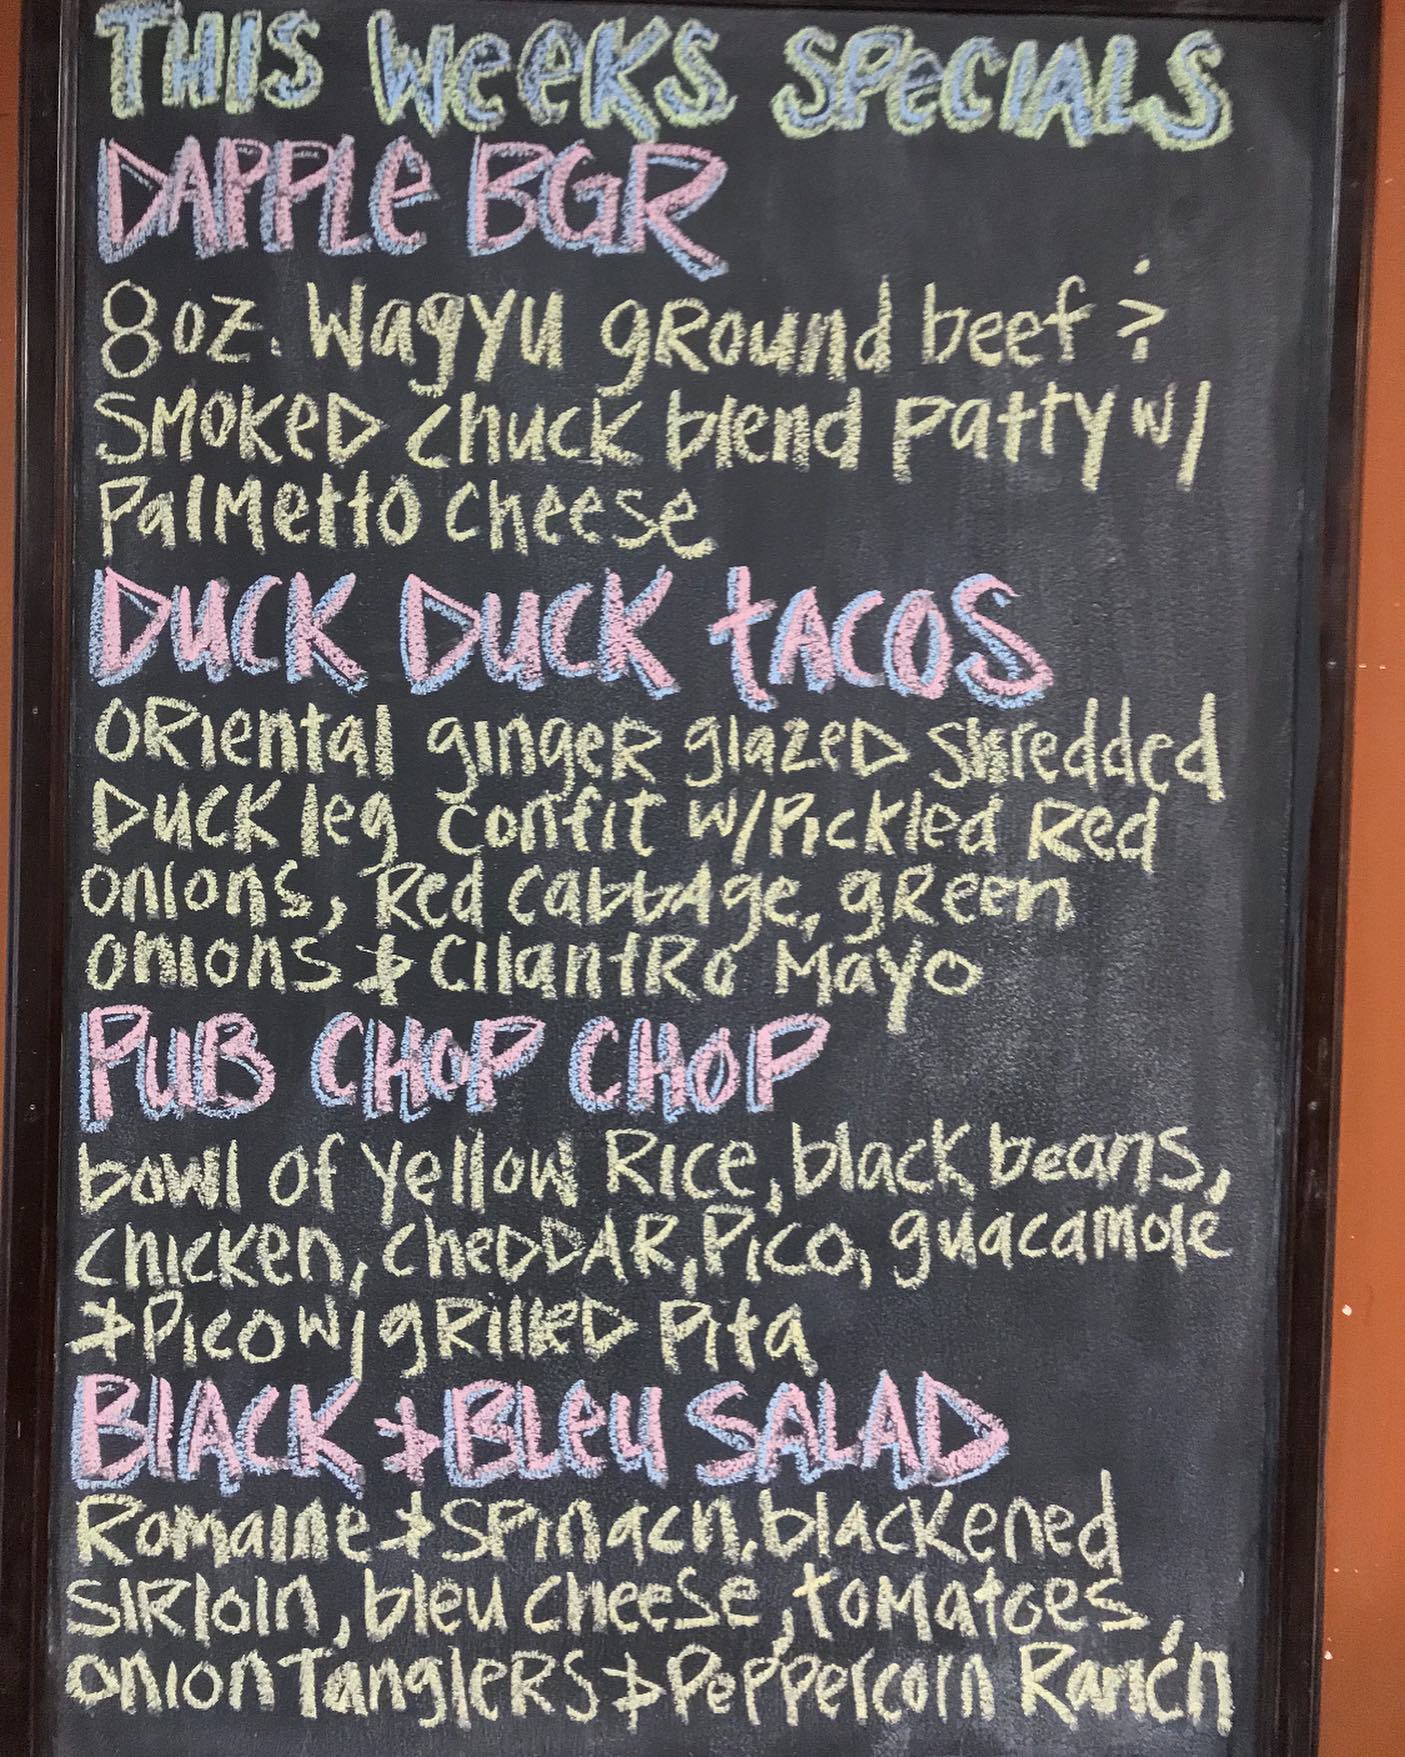 THIS WEEKS SPECIALS
DAPPLE BGR
8oz. Wagyu ground beef &
Smoked chuck blend patty w/
Palmetto cheese
DUCK DUCK TACOS
Oriental ginger glazed shredded
Duck leg confit w/pickled Red
onions, Red cabbage, green
onions & cilantro Mayo
PUB CHOP CHOP
bowl of yellow Rice, black beans,
chicken, cheDDAR, Pico, guacamole
& Pico w/ grilled Pita
BLACK & BLeu SALAD
Romaine & Spinach, blackened
sirloin, bleu cheese, tomatoes,
onion Tanglers & Peppercorn Ranch